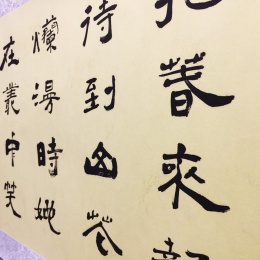 把春來報
待到山花
爛漫時她
在叢中笑